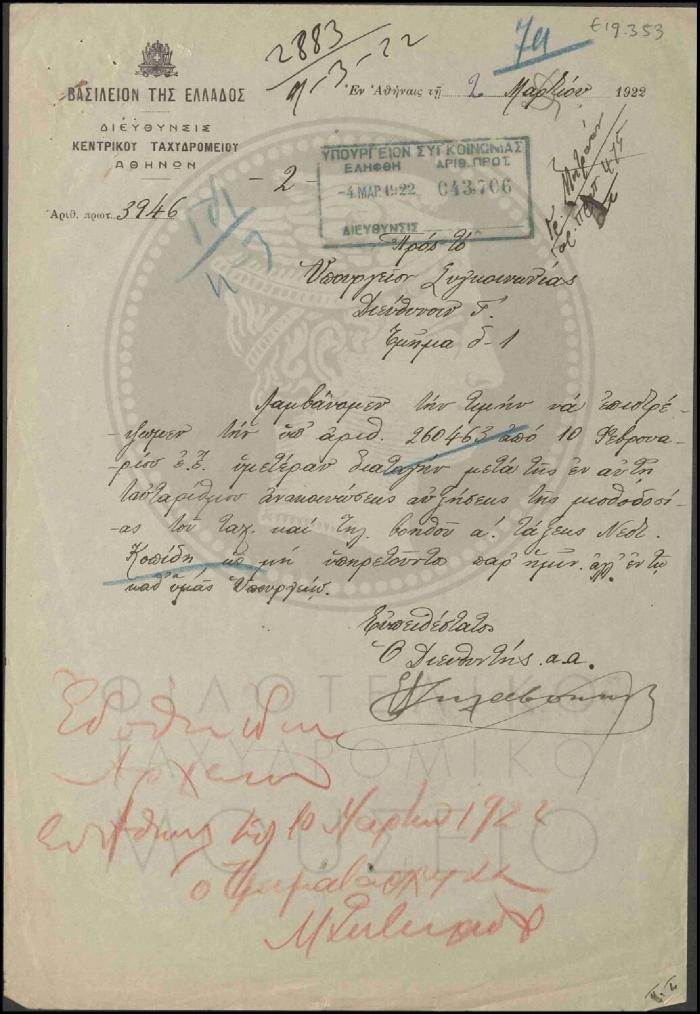 Ε19.353
74
2883
9-3-22
ΒΑΣΙΛΕΙΟΝ ΤΗΣ ΕΛΛΑΔΟΣ
ΔΙΕΥΘΥΝΣΙΣ
ΚΕΝΤΡΙΚΟΥ ΤΑΧΥΔΡΟΜΕΙΟΥ
ΑΘΗΝΩΝ
Ἀριθ. πρωτ. 3946
Ἐν Ἀθήναις τῇ 2 Μαρτίου 1922
- 2 -
ΥΠΟΥΡΓΕΙΟΝ ΣΥΓΚΟΙΝΩΝΙΑΣ
ΕΛΗΦΘΗ ΑΡΙΘ. ΠΡΩΤ.
-4 ΜΑΡ. 1922 043,706
ΔΙΕΥΘΥΝΣΙΣ
Πρὸς τὸ
Ὑπουργεῖον Συγκοινωνίας
Διεύθυνσιν Γ'.
Τμῆμα δ-1
Λαμβάνομεν τὴν τιμὴν νὰ ἐπιστρέ-
-ψωμεν τὴν ὑπ' ἀριθ. 260463 ἀπὸ 10 Φεβρουα-
ρίου ἐ.ἔ. ὑμετέραν διαταγὴν μετὰ τῆς ἐν αὐτῇ
ταὐταρίθμου ἀνακοινώσεως αὐξήσεως τῆς μισθοδοσί-
-ας τοῦ ταχ. καὶ τηλ. βοηθοῦ α'. τάξεως Νεστ.
Κοπίδη ὡς μὴ ὑπηρετοῦντο παρ' ἡμῖν, ἀλλ' ἐν τῷ
καθ' ὑμᾶς Ὑπουργείῳ.
Εὐπειθέστατος
Ὁ Διευθυντής α.α.
Ἀρχεῖον
Ἐν Ἀθήναις τῇ 10 Μαρτίου 1922
ὁ Τμηματάρχης
ΦΙΛΟΤΕΛΙΚΟ
ΤΑΧΥΔΡΟΜΙΚΟ
ΜΟΥΣΕΙΟ